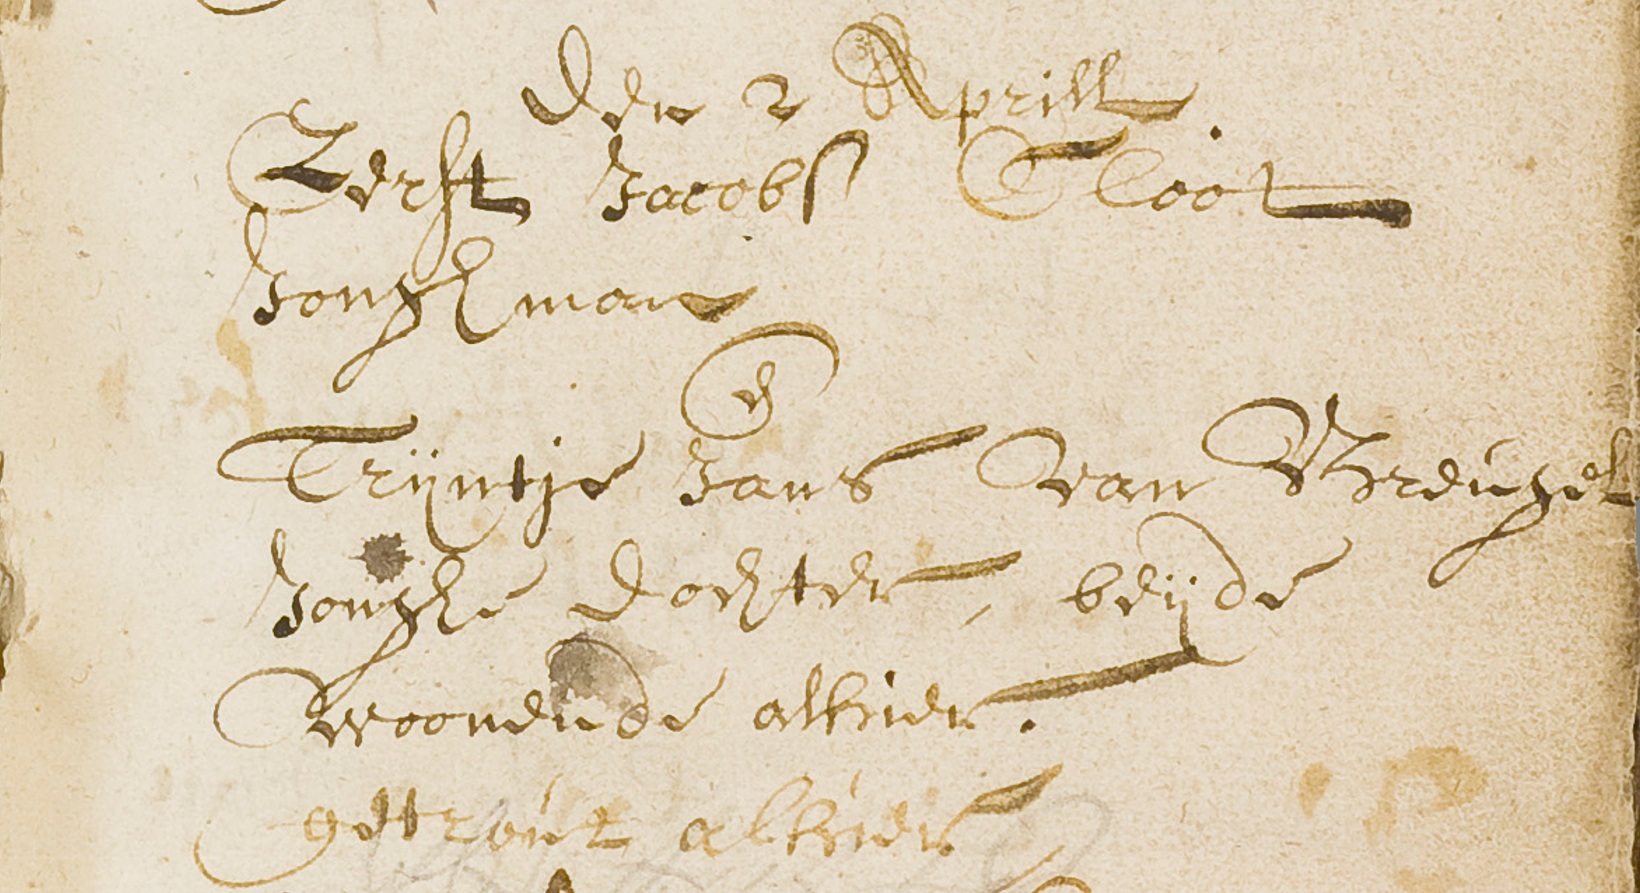 den 2 Aprill
Eerst Jacobs Cloot
Jonghman
en
Trijntje Jans van Breugel
Jonghe dochter, beijde
woonende alhier.
getrout alhier